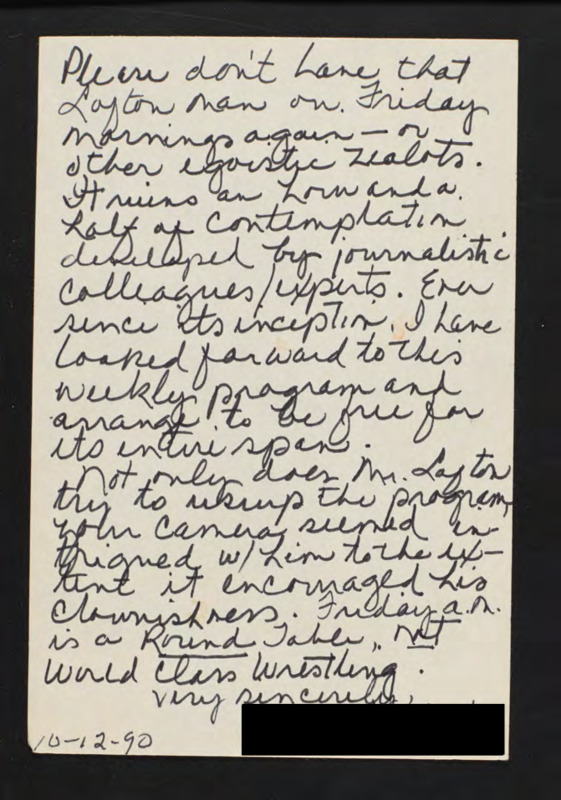 Please don't have that
Lofton man on Friday
mornings again — or
other egoistic zealots.
It ruins an hour and a
half of contemplation
developed by journalistic
colleagues/experts. Ever
since its inception, I have
looked forward to this
weekly program and
arrange to be free for
its entire span.
Not only does Mr. Lofton
try to usurp the program,
your camera seemed in-
trigued w/ him to the ex-
tent it encouraged his
clownishness. Friday a.m.
is a Round Table, not
World Class Wrestling.
Very sincerely,
10-12-90